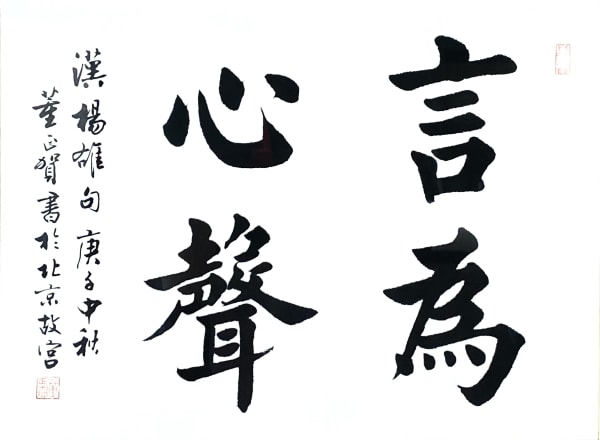 言為
心聲
漢楊雄句庚子中秋
董正賀書於北京故宮